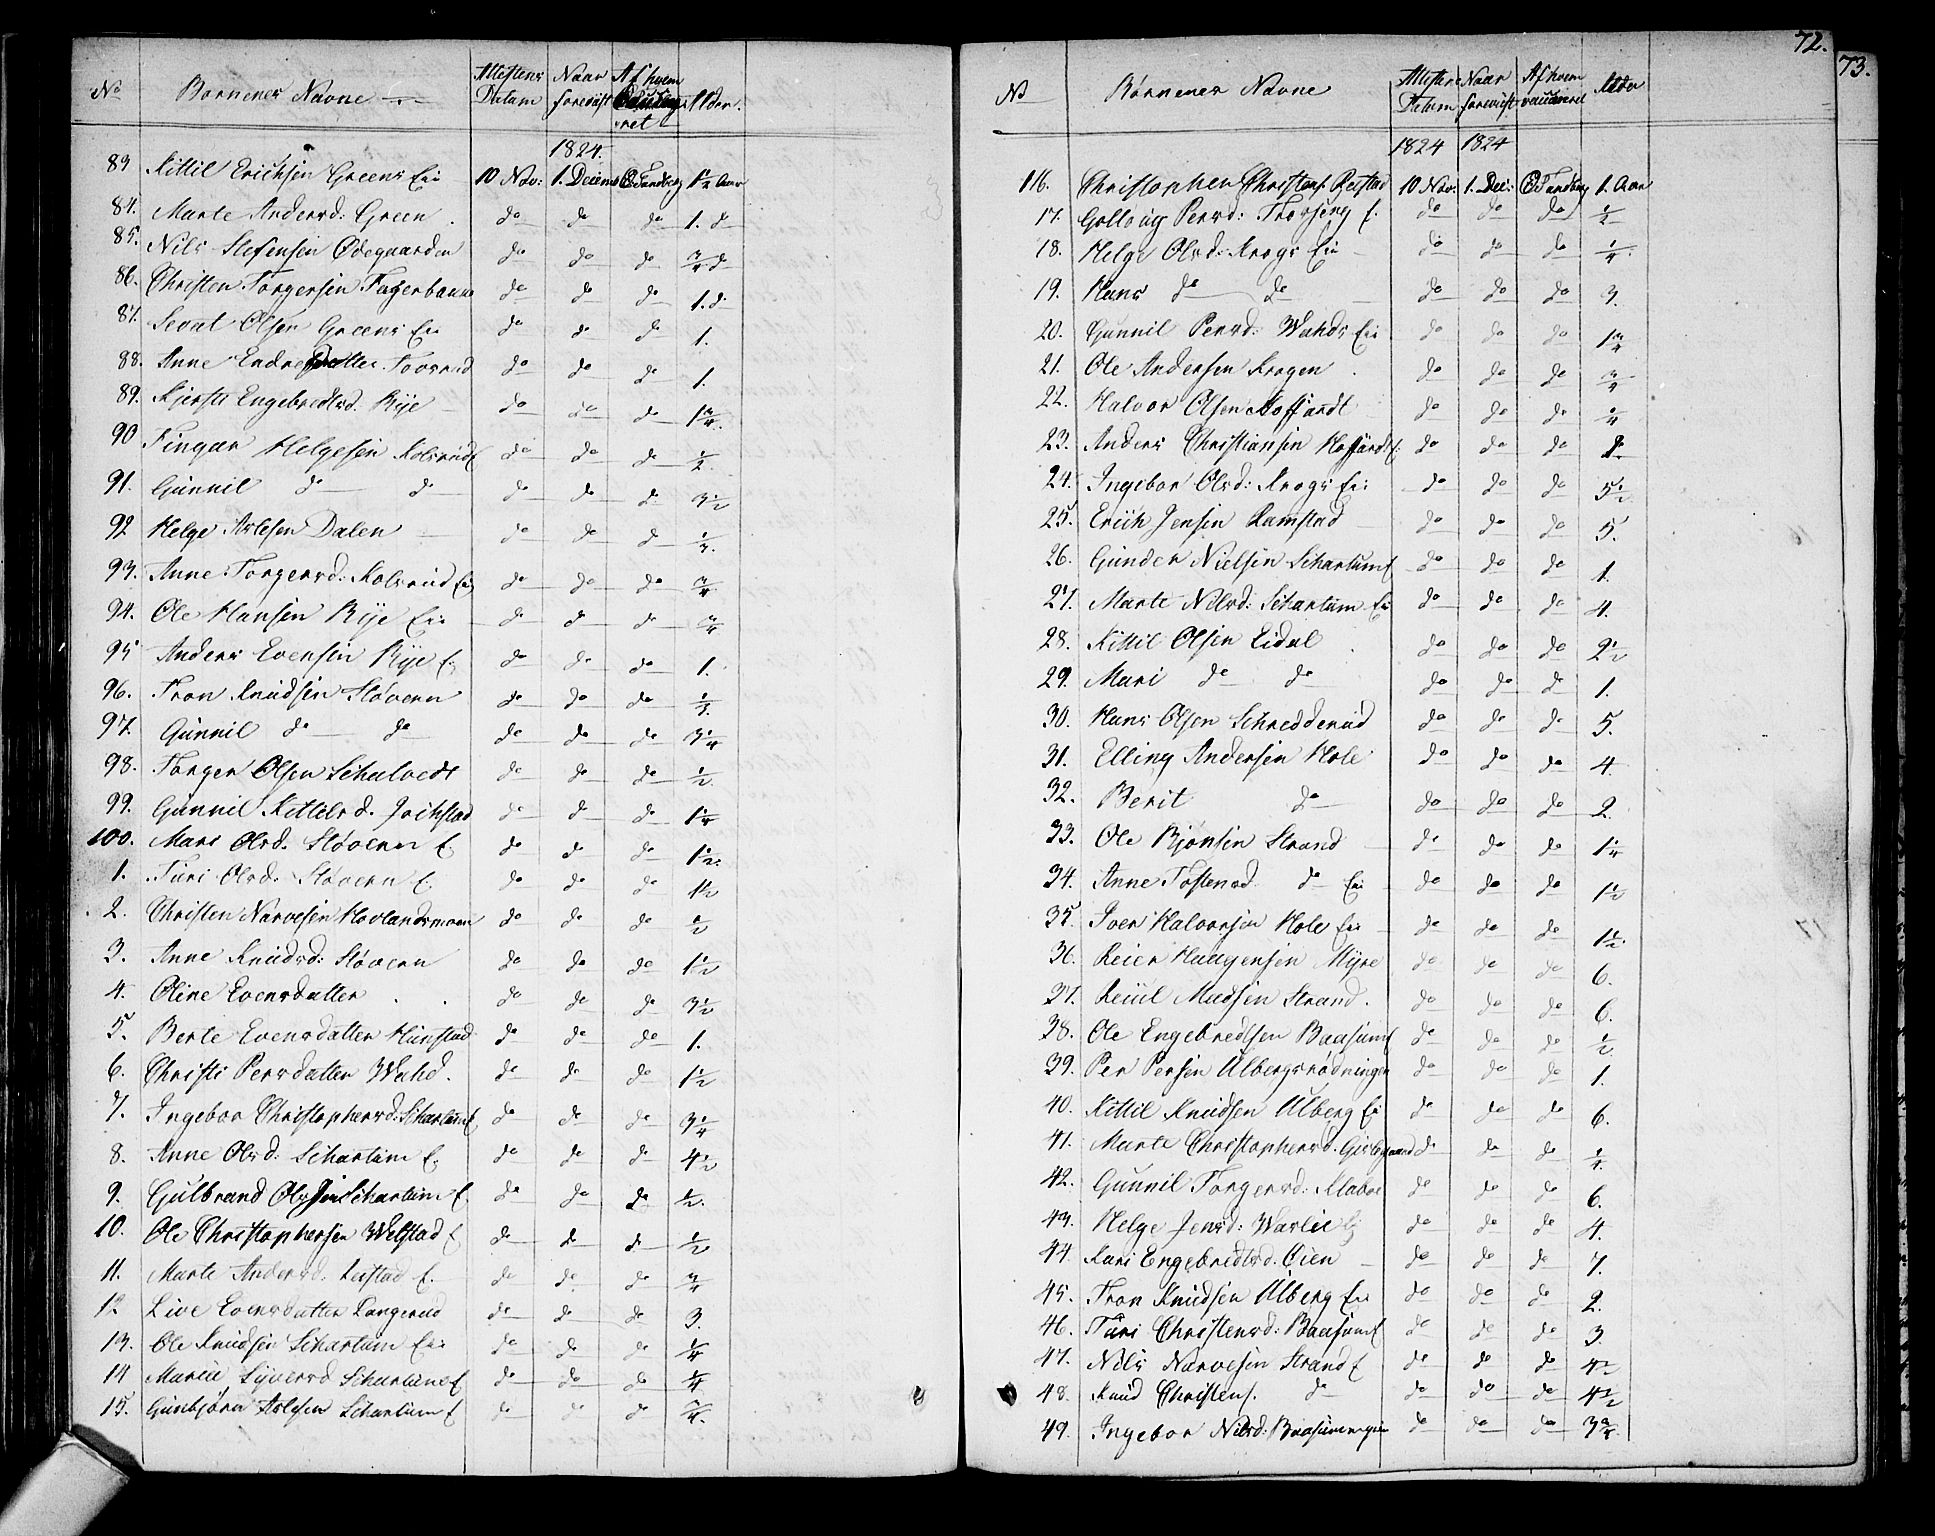 72.
73.
No Børnenes Navne Attestens Datum Naar foreviist Af hvem ret Alder.
1824.
83 Kittil Erichsen Greens Eie 10 Nov: 1. Decemb O Tandberg 1½ Aar
84. Marte Andersd: Green do do do 1. do
85. Nils Stefensen Ødegaarden do do do ¾ do
86. Christen Torgersen Fagerbakke do do do 1. do
87. Sevat Olsen Greens Eie do do do 1.
88. Anne Endresdatter Tovsrud do do do 1.
89. Kjersti Engebredtsd. Rye do do do 1¾.
90 Fingar Helgesen Kolsrud E do do do ½
91. Gunnil do do do do do 3½
92 Helge Aslesen Dalen do do do
93. Anne Torgersd: Kolsrud Eie do do do ¾
94. Ole Hansen Rye Eie do do do ¾
95 Anders Evensen Rye E. do do do 1.
96. Tron Knudsen Støvern do do do
97. Gunnil do do do do do 3¼
98. Torger Olsen Schalvedt do do do ½
99. Gunnil Kittelsd. Jothstad do do do 1¼
100. Mari Olsd. Støvern E. do do do 1½.
1. Turi Olsd. Støvern E. do do do 1½
2. Christen Narvesen Hovlandsmoen do do do ½
3. Anne Knudsd: Støvern do do do 1½
4. Oline Evensdatter do do do 3½
5. Berte Evensdatter Hunstad do do do 1.
6. Christi Persdatter Wahd. do do do 1½
7. Ingebor Christophersd: Schartum E do do do 3¼
8. Anne Olsd: Schartum E. do do do 4½
9. Gulbrand Olsen Schartum E. do do do ½.
10. Ole Christophersen Welstad E do do do ½
11. Marte Andersd. Restad E. do do do ¾
12 Live Evensdatter Langerud do do do 3.
13. Ole Knudsen Schartum Eie do do do ¼
14 Marie Syversd Schartum E do do do ¼
15. Gunbjørn Aslesen Schartum E do do do ¾.
No Børnenes Navne Attestens Datum Naar foreviist Af hvem vaccineret Alder
1824 1824
116. Christopher Christens. Restad 10 Nov: 1. Dec: O Tandberg 1. Aar
17. Gollaug Persd: Thorseng E. do do do ½
18. Helge Olsd: Krogs Eie do do do ¼.
19. Hans do do do do do 3.
20. Gunnil Persd: Wahds Eie do do do 1¾
21. Ole Andersen Krogen do do do ¾
22. Halvor Olsen Hoffardt do do do ¼
23. Anders Christiansen Hoffardt E. do do do
24. Ingebor Olsd: Krogs Eie do do do 5½
25. Erich Jensen Ramstad do do do 5.
26. Gunder Nielsen Schartum E do do do 1.
27. Marte Nilsd: Schartum Eie do do do 4.
28. Kittil Olsen Eidal do do do 2½
29. Mari do do do do do 1.
30. Hans Olsen Schredderud do do do 5.
31. Elling Andersen Hole do do do 4.
32. Berit do do do do 2.
33. Ole Bjønsen Strand do do do 1¼
34. Anne Tostensd. do Eie do do do 1½
35. Iver Halvorsen Hole Eie do do do 1½.
36. Reier Haagensen Myre do do do 6.
37. Madsen Strand. do do do 6.
38. Ole Engebredtsen Baasum E do do do ½
39. Per Persen Ulbergsrødningen do do do 1.
40. Kittil Knudsen Ulberg Ei do do do 6.
41. Marte Christophersd. Gislegaard do do do
42. Gunnil Torgersd: Klaboe do do do 6.
43. Helge Jensd: Warlie E do do do 4.
44. Kari Engebredtsd. Øien do do do 7.
45. Tron Knudsen Ulberg Eie do do do 2.
46. Turi Christensd: Baasum E do do do 3
47. Nils Narvesen Strand E do do do 4½
48. Knud Christens. do do do do 4½
49. Ingebor Nilsd: Baasumengen do do do 3¾.